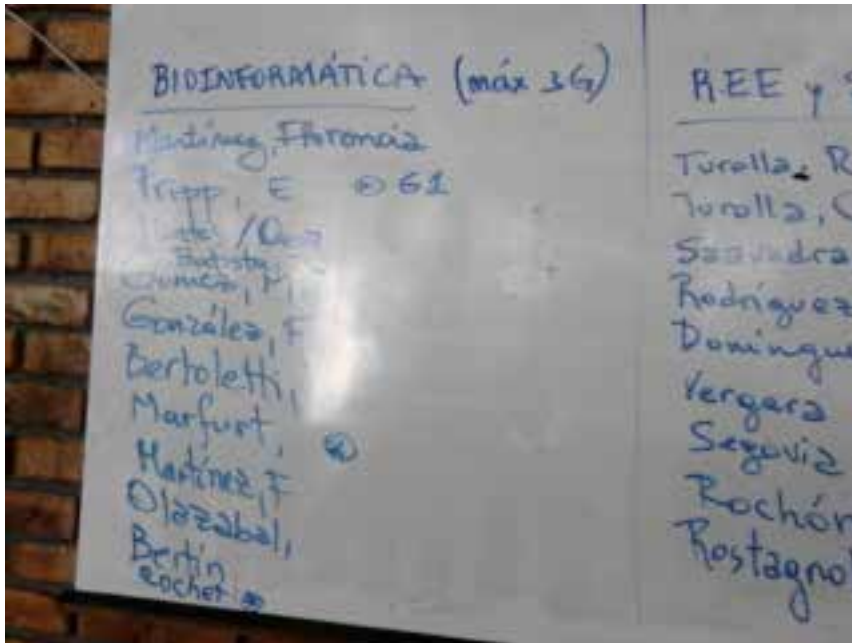 BIOINFORMÁTICA (máx 3G)
Martínez, Florencia
Fripp, E G1
Gómez, M
González, F
Bertoletti,
Marfurt,
Martínez, F
Olazabal,
Bertin
Rochet
REE y
Turolla, R
Turolla, C
Saavedra
Rodríguez
Domingue
Vergara
Segovia
Rochón
Rostagnol